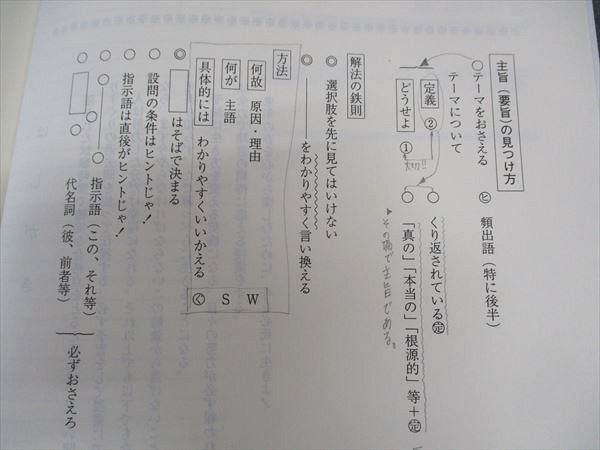 主旨（要旨）の見つけ方
○テーマをおさえる　㋪　頻出語（特に後半）
テーマについて
定義　②　○　くり返されている㊣
どうせよ　①　○　「真の」「本当の」「根源的」等＋㊣
大切!!
その場で主旨である。
解法の鉄則
◎　選択肢を先に見てはいけない
◎　――――をわかりやすく言い換える
方法
何故　原因・理由
何が　主語
具体的には　わかりやすくいいかえる
㋗　S　W
◎　□はそばで決まる
○　設問の条件はヒントじゃ！
○　指示語は直後がヒントじゃ！
○　指示語（この、それ等）
○　代名詞（彼、前者等）
必ずおさえろ